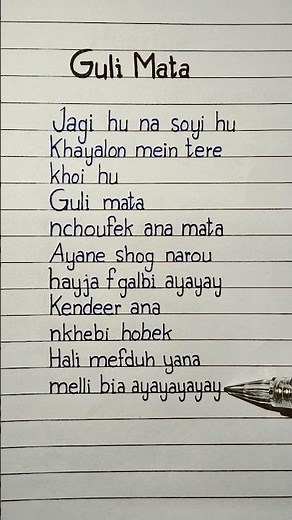 Guli Mata
Jagi hu na soyi hu
Khayalon mein tere
khoi hu
Guli mata
nchoufek ana mata
Ayane shog narou
hayja f galbi ayayay
Kendeer ana
nkhebi hobek
Hali mefduh yana
melli bia ayayayayay